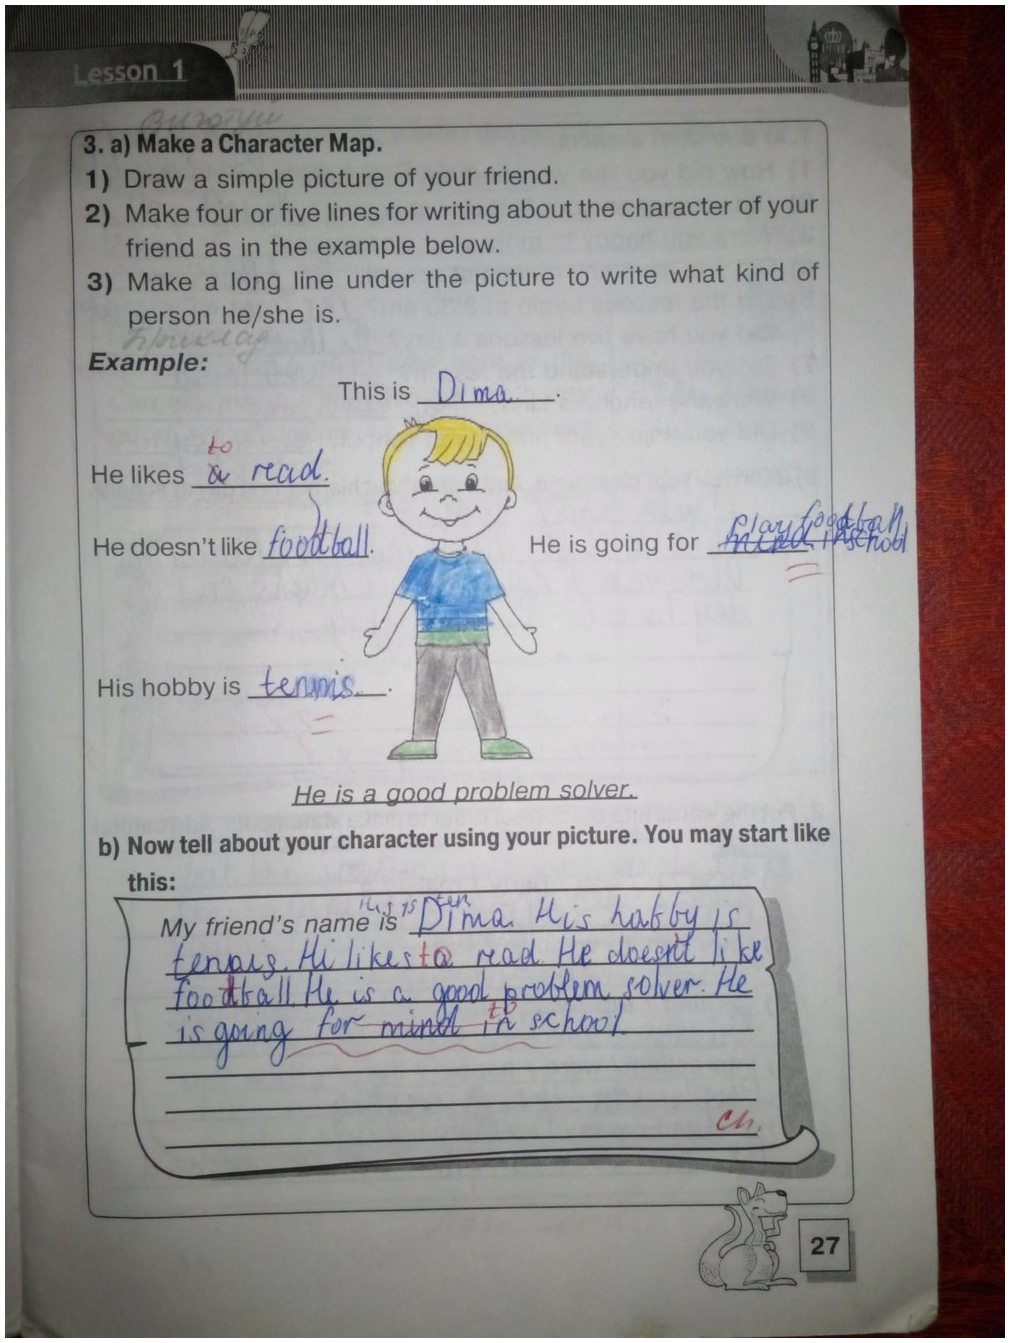 Lesson 1
3. a) Make a Character Map.
1) Draw a simple picture of your friend.
2) Make four or five lines for writing about the character of your
friend as in the example below.
3) Make a long line under the picture to write what kind of
person he/she is.
Example:
This is Dima.
to
He likes a read.
He doesn't like football.
play football
He is going for mind in school
His hobby is tennis.
He is a good problem solver.
b) Now tell about your character using your picture. You may start like
this:
My friend's name is Dima. His habby is
tennis. Hi likes to read. He doesn't like
football. He is a good problem solver. He
to
is going for mind in school.
Ch.
27